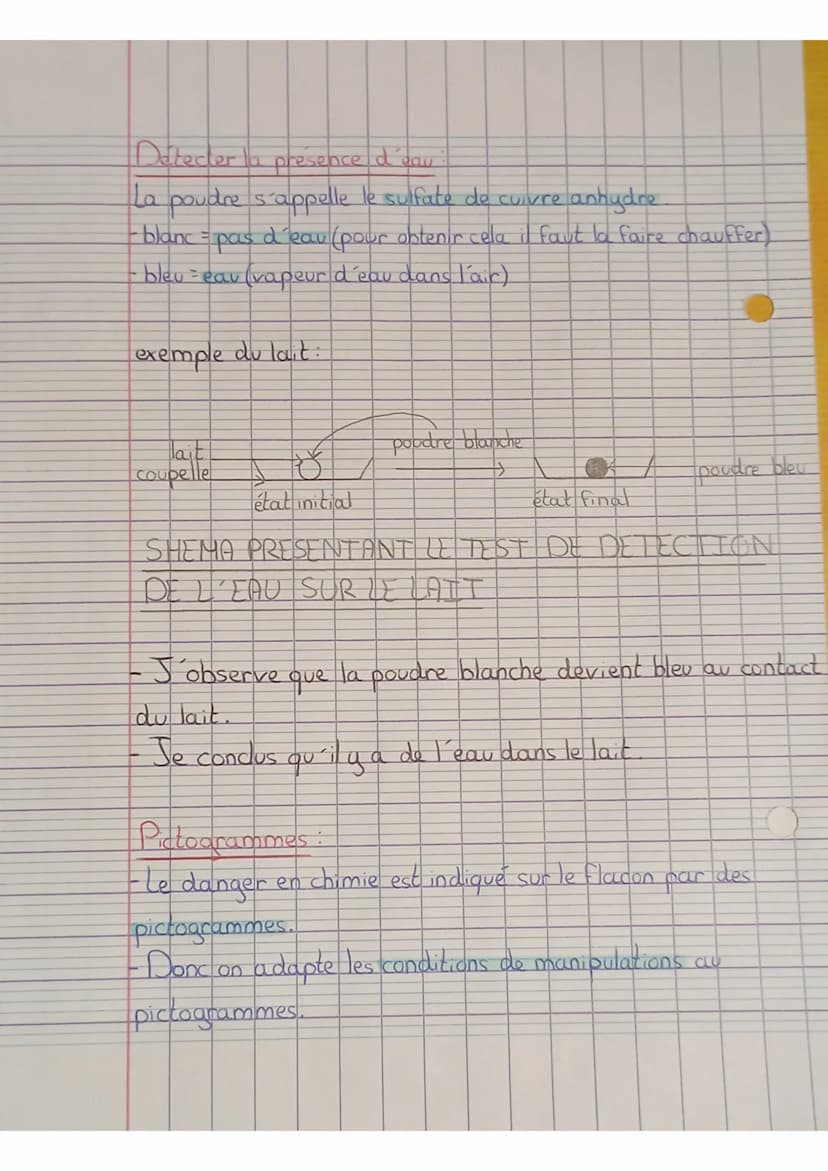 Détecter la présence d'eau :
La poudre s'appelle le sulfate de cuivre anhydre
- blanc = pas d'eau (pour obtenir cela il faut la faire chauffer)
- bleu = eau (vapeur d'eau dans l'air)
exemple du lait :
poudre blanche
lait
coupelle
poudre bleu
état initial
état final
SHEMA PRESENTANT LE TEST DE DETECTION
DE L'EAU SUR LE LAIT
- J'observe que la poudre blanche devient bleu au contact
du lait.
- Je conclus qu'il y a de l'eau dans le lait.
Pictogrammes :
- Le danger en chimie est indiqué sur le fladon par des
pictogrammes.
- Donc on adapte les conditions de manipulations au
pictogrammes.